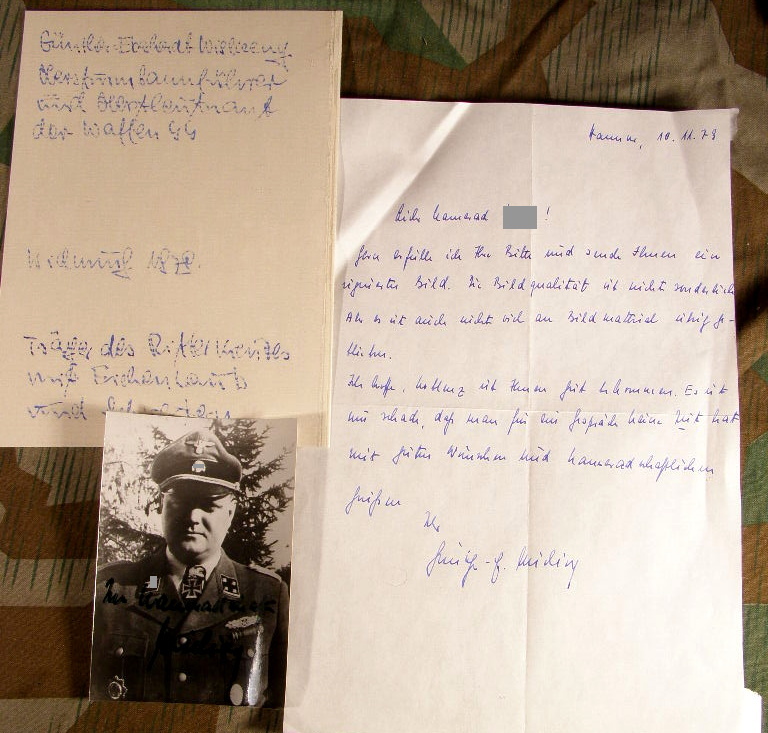 Günther-Eberhardt Wisliceny
Obersturmbannführer
und Oberstleutnant
der Waffen SS
Widmung 1979.
Träger des Ritterkreuzes
mit Eichenlaub
und Schwertern
Hannover, 10.11.79
Lieber Kamerad !
Gern erfülle ich Ihre Bitte und sende Ihnen ein
signiertes Bild. Die Bildqualität ist nicht sonderlich
Aber es ist auch nicht viel an Bildmaterial übrig ge-
blieben.
Ich hoffe, Koblenz ist Ihnen gut bekommen. Es ist
nur schade, daß man für ein Gespräch keine Zeit hat
Mit guten Wünschen und kameradschaftlichen
Grüßen
Ihr